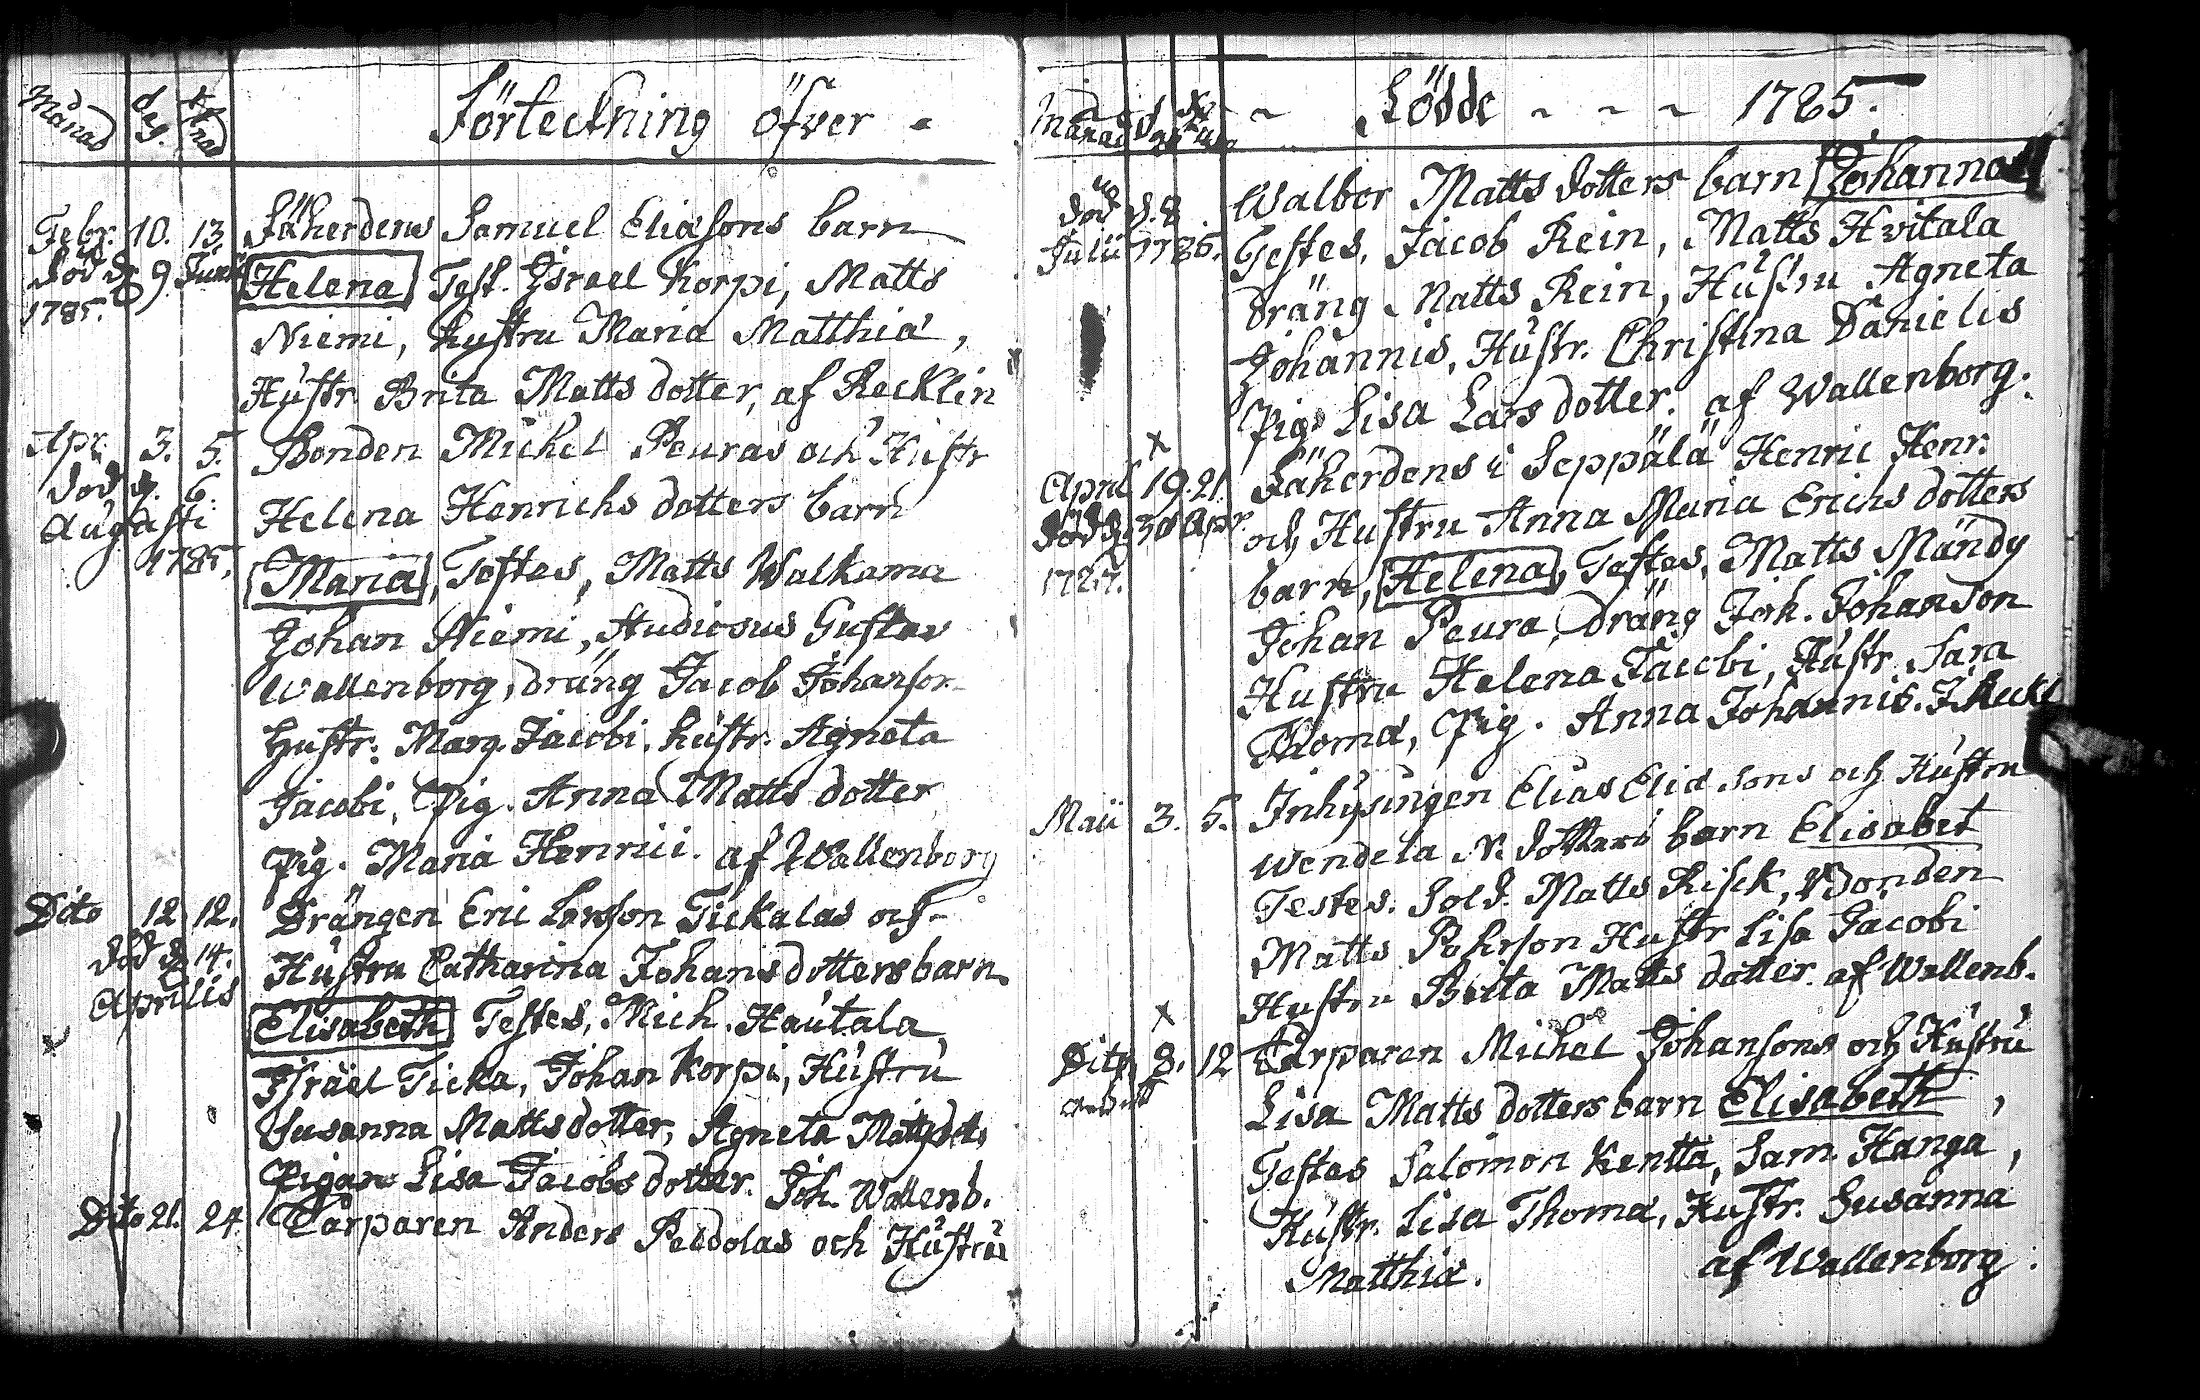 Månad dag. Kstnad Förteckning öfver -
Febr. 10. 13. Fäherdens Samuel Eliasons barn
död d. 9 Junii Helena Test. Israel Korpi, Matts
1785. Niemi, hustru Maria Matthiæ,
Hustr. Brita Matts dotter, af Recklin
Apr. 3. 5. Bonden Michel Peuras och Hustr
död d. 6. Helena Henrichs dotters barn
Augusti
1785, Maria, Testes, Matts Walkama
Johan Niemi, Studiosus Gustav
Wallenborg, dräng Jacob Johanson
Hustr. Marg. Jacobi, hustr. Agneta
Jacobi, Pig. Anna Matts dotter
Pig. Maria Henrici. af Wallenborg
Dito 12 12. Drängen Eric Larsson Tickalas och
död d. 14. Hustru Catharina Johansdotters barn
Aprilis Elisabeth Testes, Mich. Hautala
Israel Ticka, Johan Korpi, Hustru
Susanna Mattsdotter, Agneta Mattsdot.
Pigan Lisa Jacobs dotter. Joh. Wallenb.
Dito 21. 24 Torparen Anders Peldolas och Hustru
Månad dag - Födde - - - 1785.
död d. 8 Walbor Matts dotters barn Johanna
Julii 1786. Testes, Jacob Rein, Matts Hvitala
dräng Matts Rein, Hustru Agneta
Johannis, Hustr. Christina Danielis
Pig. Lisa Lars dotter. af Wallenborg.
x
April 19. 21. Fäherdens i Seppälä Henric Henr.
död d. 30 Apr. och Hustru Anna Maria Erichs dotters
1787. barn, Helena, Testes, Matts Mändy
Johan Peura, dräng Joh. Johanson
Hustru Helena Jacobi, Hustr. Sara
Thomæ, Pig. Anna Johannis.
Maii 3. 5. Inhysingen Elias Eliæ sons och Hustru
Wendela N. dotters barn Elisabet
Testes. Sold. Matts Risck, Bonden
Matts Pehrson Hustr Lisa Jacobi
Hustru Brita Matts dotter. af Wallenb.
x
Dito 8. 12 Torparen Michel Johansons och Hustru
Lisa Matts dotters barn Elisabeth,
Testes Salomon Kentta, Sam. Hanga,
Hustr. Lisa Thomæ, Hustr. Susanna
Matthiæ. af Wallenborg.